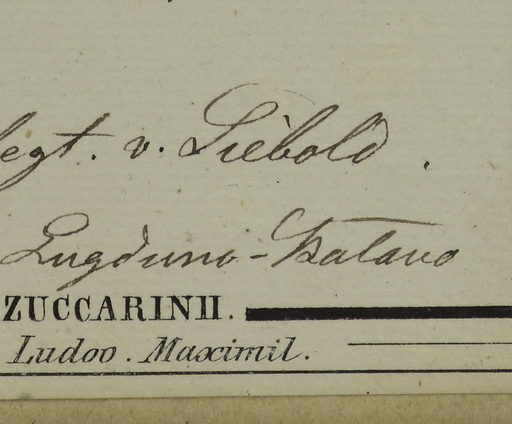 legt. v. Siebold.
Lugduno-Batavo
ZUCCARINII.
Ludov. Maximil.